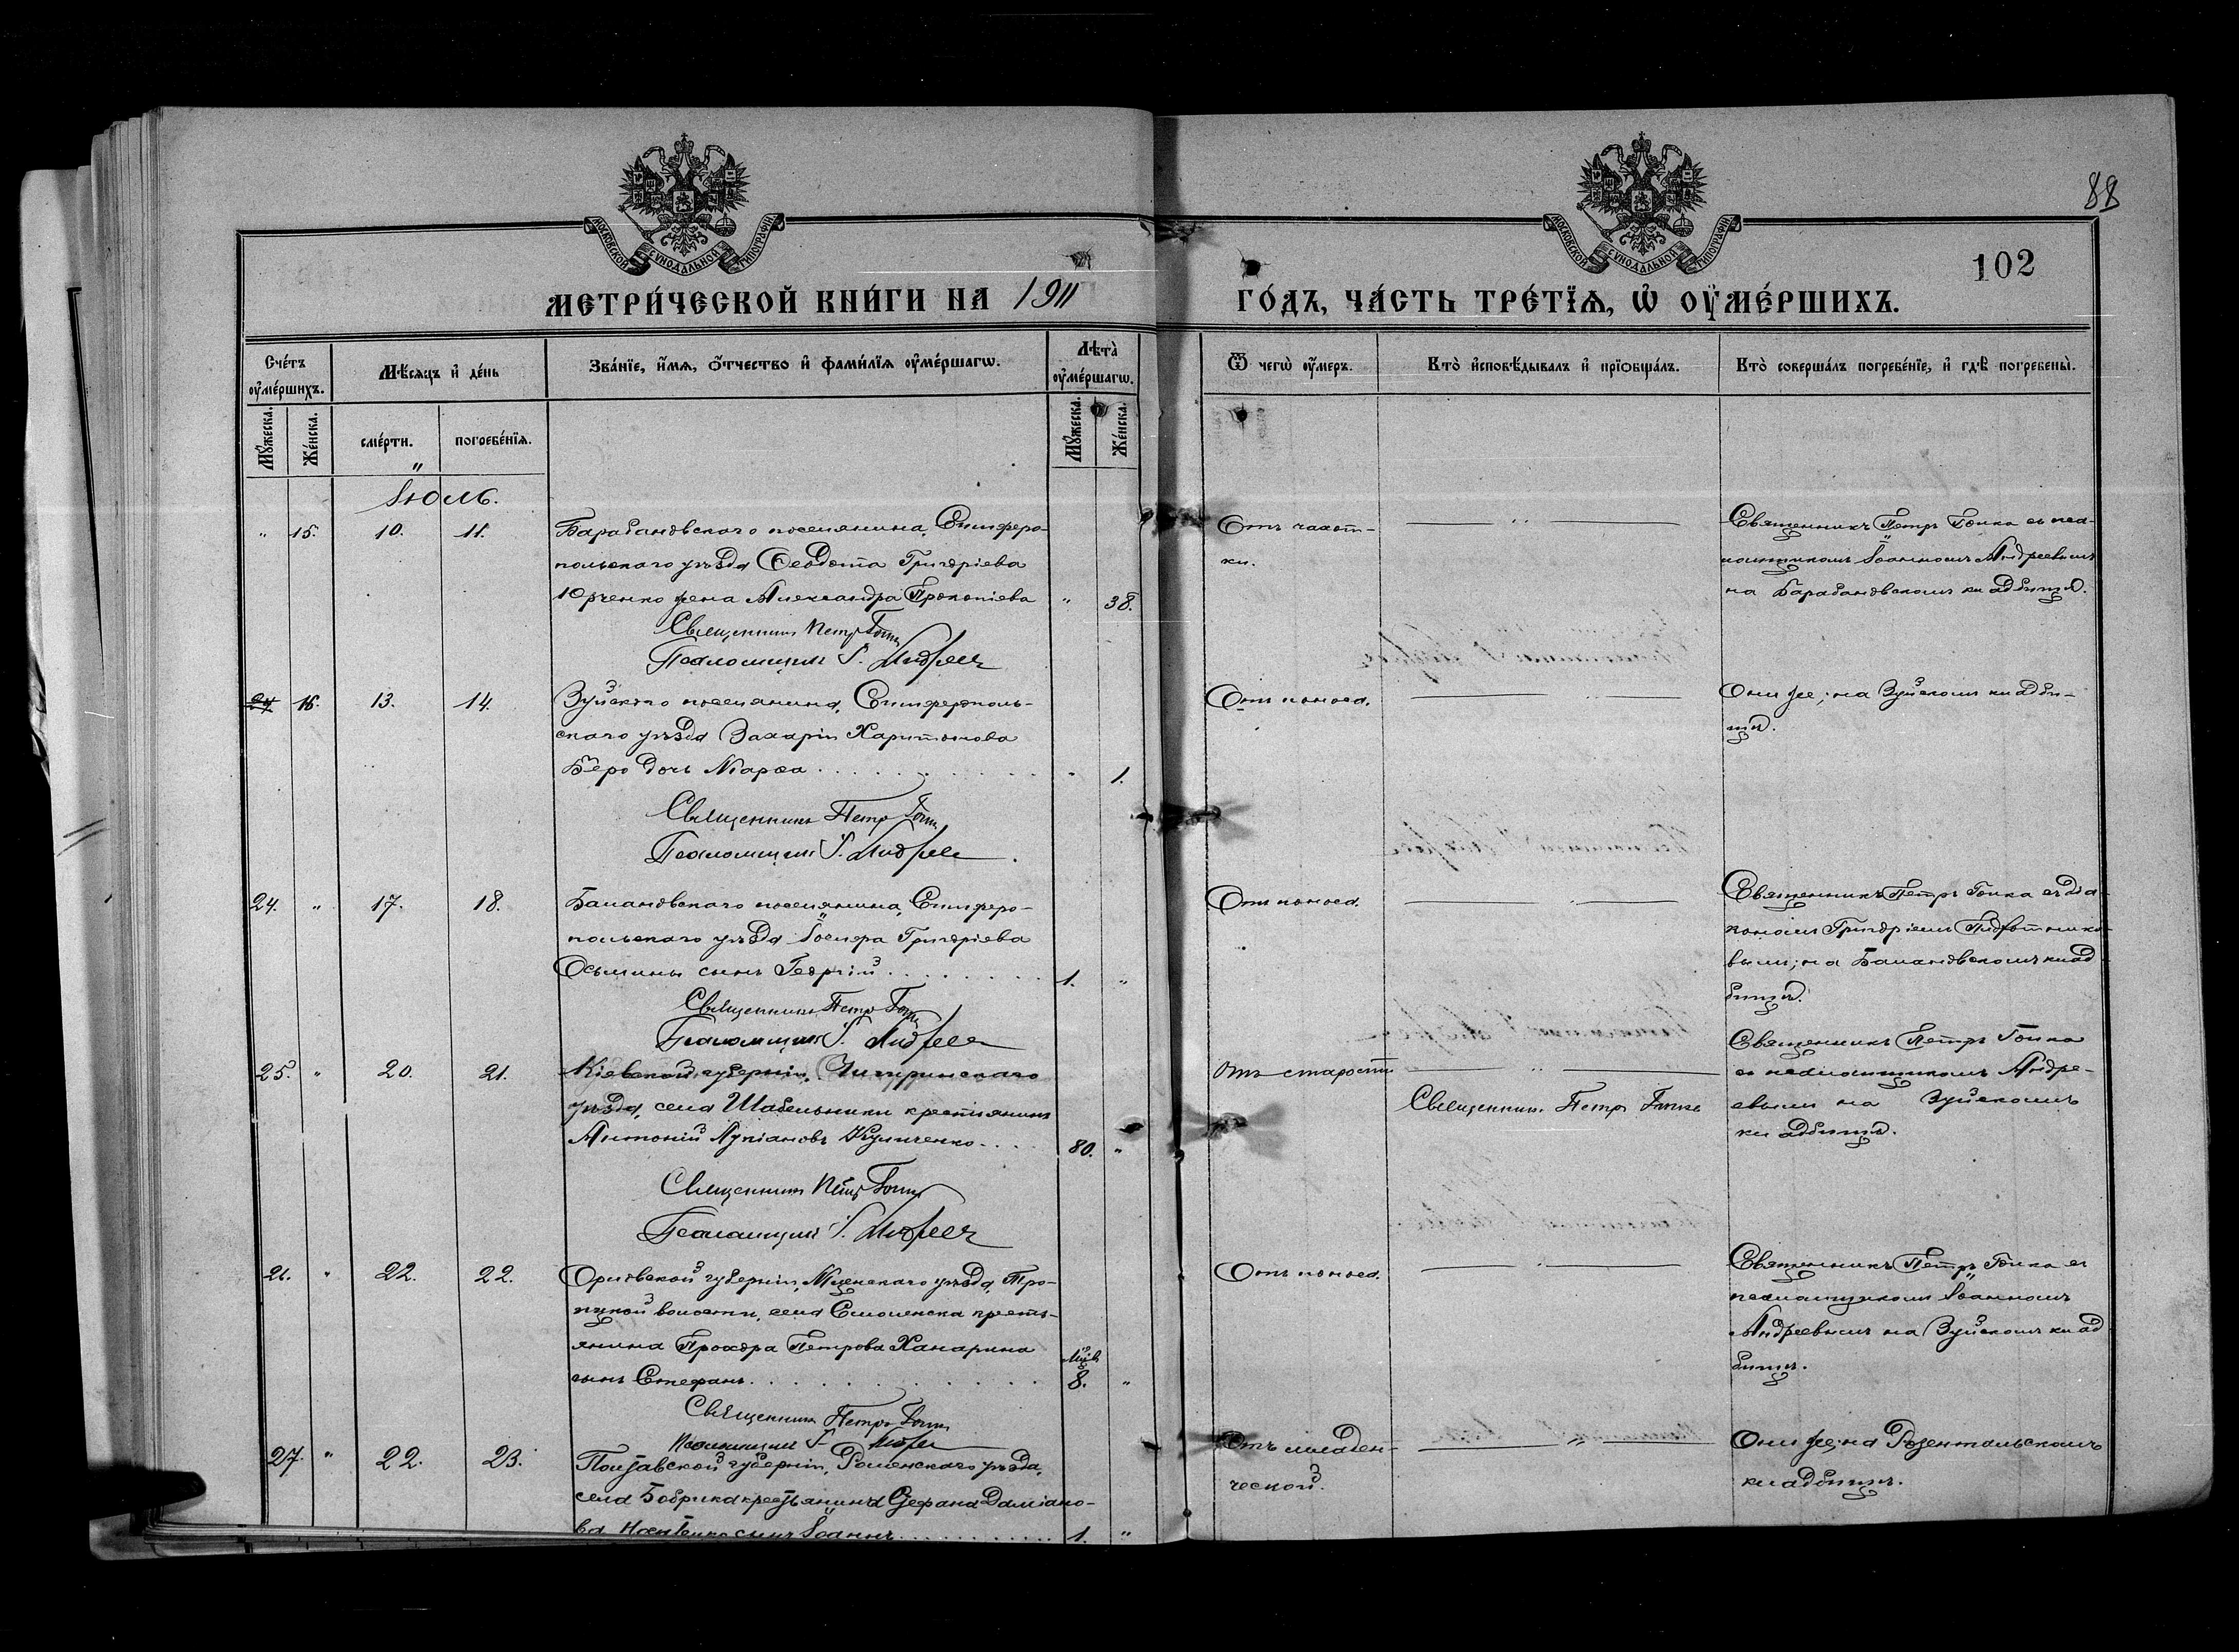 88
102
МОСКОВСКОЙ СѴНОДАЛЬНОЙ ТИПОГРАФІИ
МОСКОВСКОЙ СѴНОДАЛЬНОЙ ТИПОГРАФІИ
МЕТРИ́ЧЕСКОЙ КНИ́ГИ НА 1911
ГО́ДЪ, ЧА́СТЬ ТРЕ́ТІѦ, Ѡ҆ ОУ҆МЕ́РШИХЪ.
Сче́тъ оу҆ме́ршихъ.
Мѣ́сѧцъ и҆ де́нь
Зва́нїе, и҆́мѧ, ѻ҆́тчество и҆ фами́лїѧ оу҆ме́ршагѡ.
Лѣта̀ оу҆ме́ршагѡ.
Ѿ чегѡ̀ оу҆́меръ.
Кто̀ и҆сповѣ́дывалъ и҆ прїѻбща́лъ.
Кто̀ соверша́лъ погребе́нїе, и҆ гдѣ̀ погребены̀.
Мꙋ́жеска.
Же́нска.
сме́рти.
погребе́нїѧ.
Мꙋ́жеска.
Же́нска.
Іюль.
" 15. 10. 11. Барабановскаго поселянина, Симферо-
польскаго уѣзда Ѳеодота Григоріева
Юрченко жена Александра Прокопіева " 38.
Священникъ Петръ Гопка
Псаломщикъ І. Андреев
Отъ чахот-
ки.
Священникъ Петръ Гопка съ псал-
момщикомъ Іоанномъ Андреевымъ
на Барабановскомъ кладбищѣ.
24 16. 13. 14. Зуйскаго поселянина, Симферополь-
скаго уѣзда Захаріи Харитонова
Бѣро дочь Марѳа " 1.
Священникъ Петръ Гопка
Псаломщикъ І. Андреев
Отъ поноса.
Они же; на Зуйскомъ кладби-
щѣ.
24. " 17. 18. Балановскаго поселянина, Симферо-
польскаго уѣзда Григоріева
Осьмины сынъ Георгій 1. "
Священникъ Петръ Гопка
Псаломщикъ І. Андреев
Отъ поноса.
Священникъ Петръ Гопка съ діа-
кономъ Григоріемъ
вымъ; на Балановскомъ клад-
бищѣ.
25. " 20. 21. Кіевской губерніи, Чигиринскаго
уѣзда, села Шабельники крестьянинъ
Антоній Лукіановъ Куличенко 80. "
Священникъ Петръ Гопка
Псаломщикъ І. Андреев
Отъ старости
Священникъ Петръ Гопка
Священникъ Петръ Гопка
съ псаломщикомъ Андре-
евымъ на Зуйскомъ
кладбищѣ.
26. " 22. 22. Орловской губерніи, Мценскаго уѣзда, Тро-
ицкой волости, села Смоленска кресть-
янина Прохора Петрова Ханарина
сынъ Стефанъ 8. "
Священникъ Петръ Гопка
Псаломщикъ І. Андреев
Отъ поноса.
Священникъ Петръ Гопка съ
псаломщикомъ Іоанномъ
Андреевымъ на Зуйскомъ клад-
бищѣ.
27. " 22. 23. Полтавской губерніи, Роменскаго уѣзда,
села Бобрика крестьянина Стефана Даміано-
ва сынъ Іоаннъ 1. "
Отъ младен-
ческой.
Они же; на Розентальскомъ
кладбищѣ.